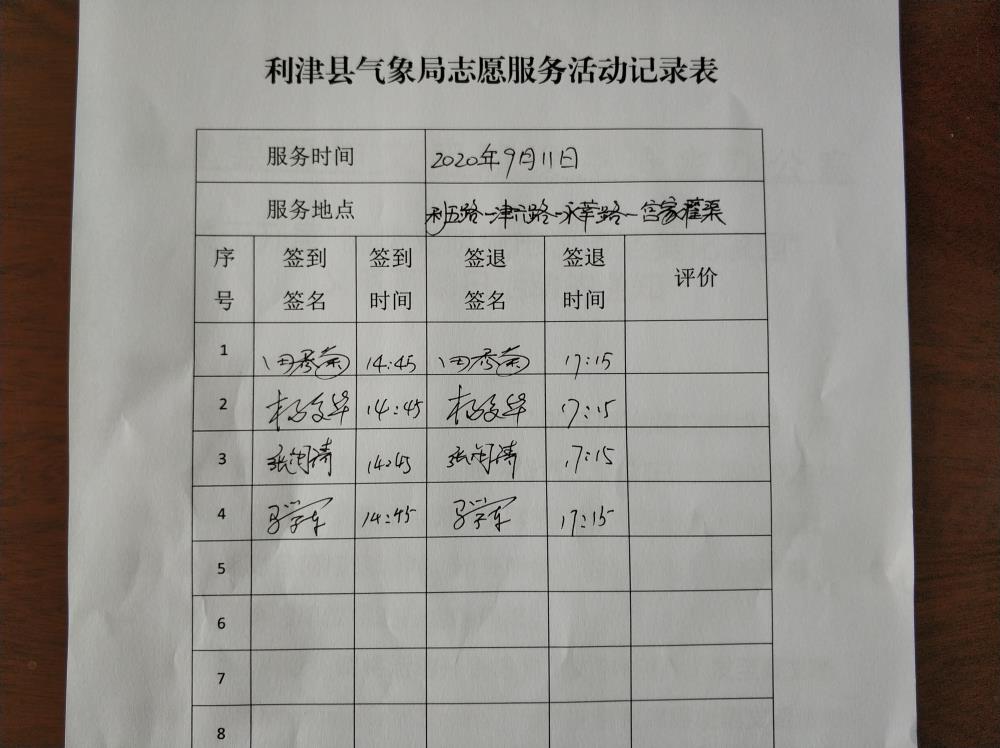 利津县气象局志愿服务活动记录表
服务时间 2020年9月11日
服务地点 利五路-津六路-永莘路-宫家灌渠
序号 签到签名 签到时间 签退签名 签退时间 评价
1 田秀菊 14:45 田秀菊 17:15
2 14:45 17:15
3 14:45 17:15
4 14:45 17:15
5
6
7
8